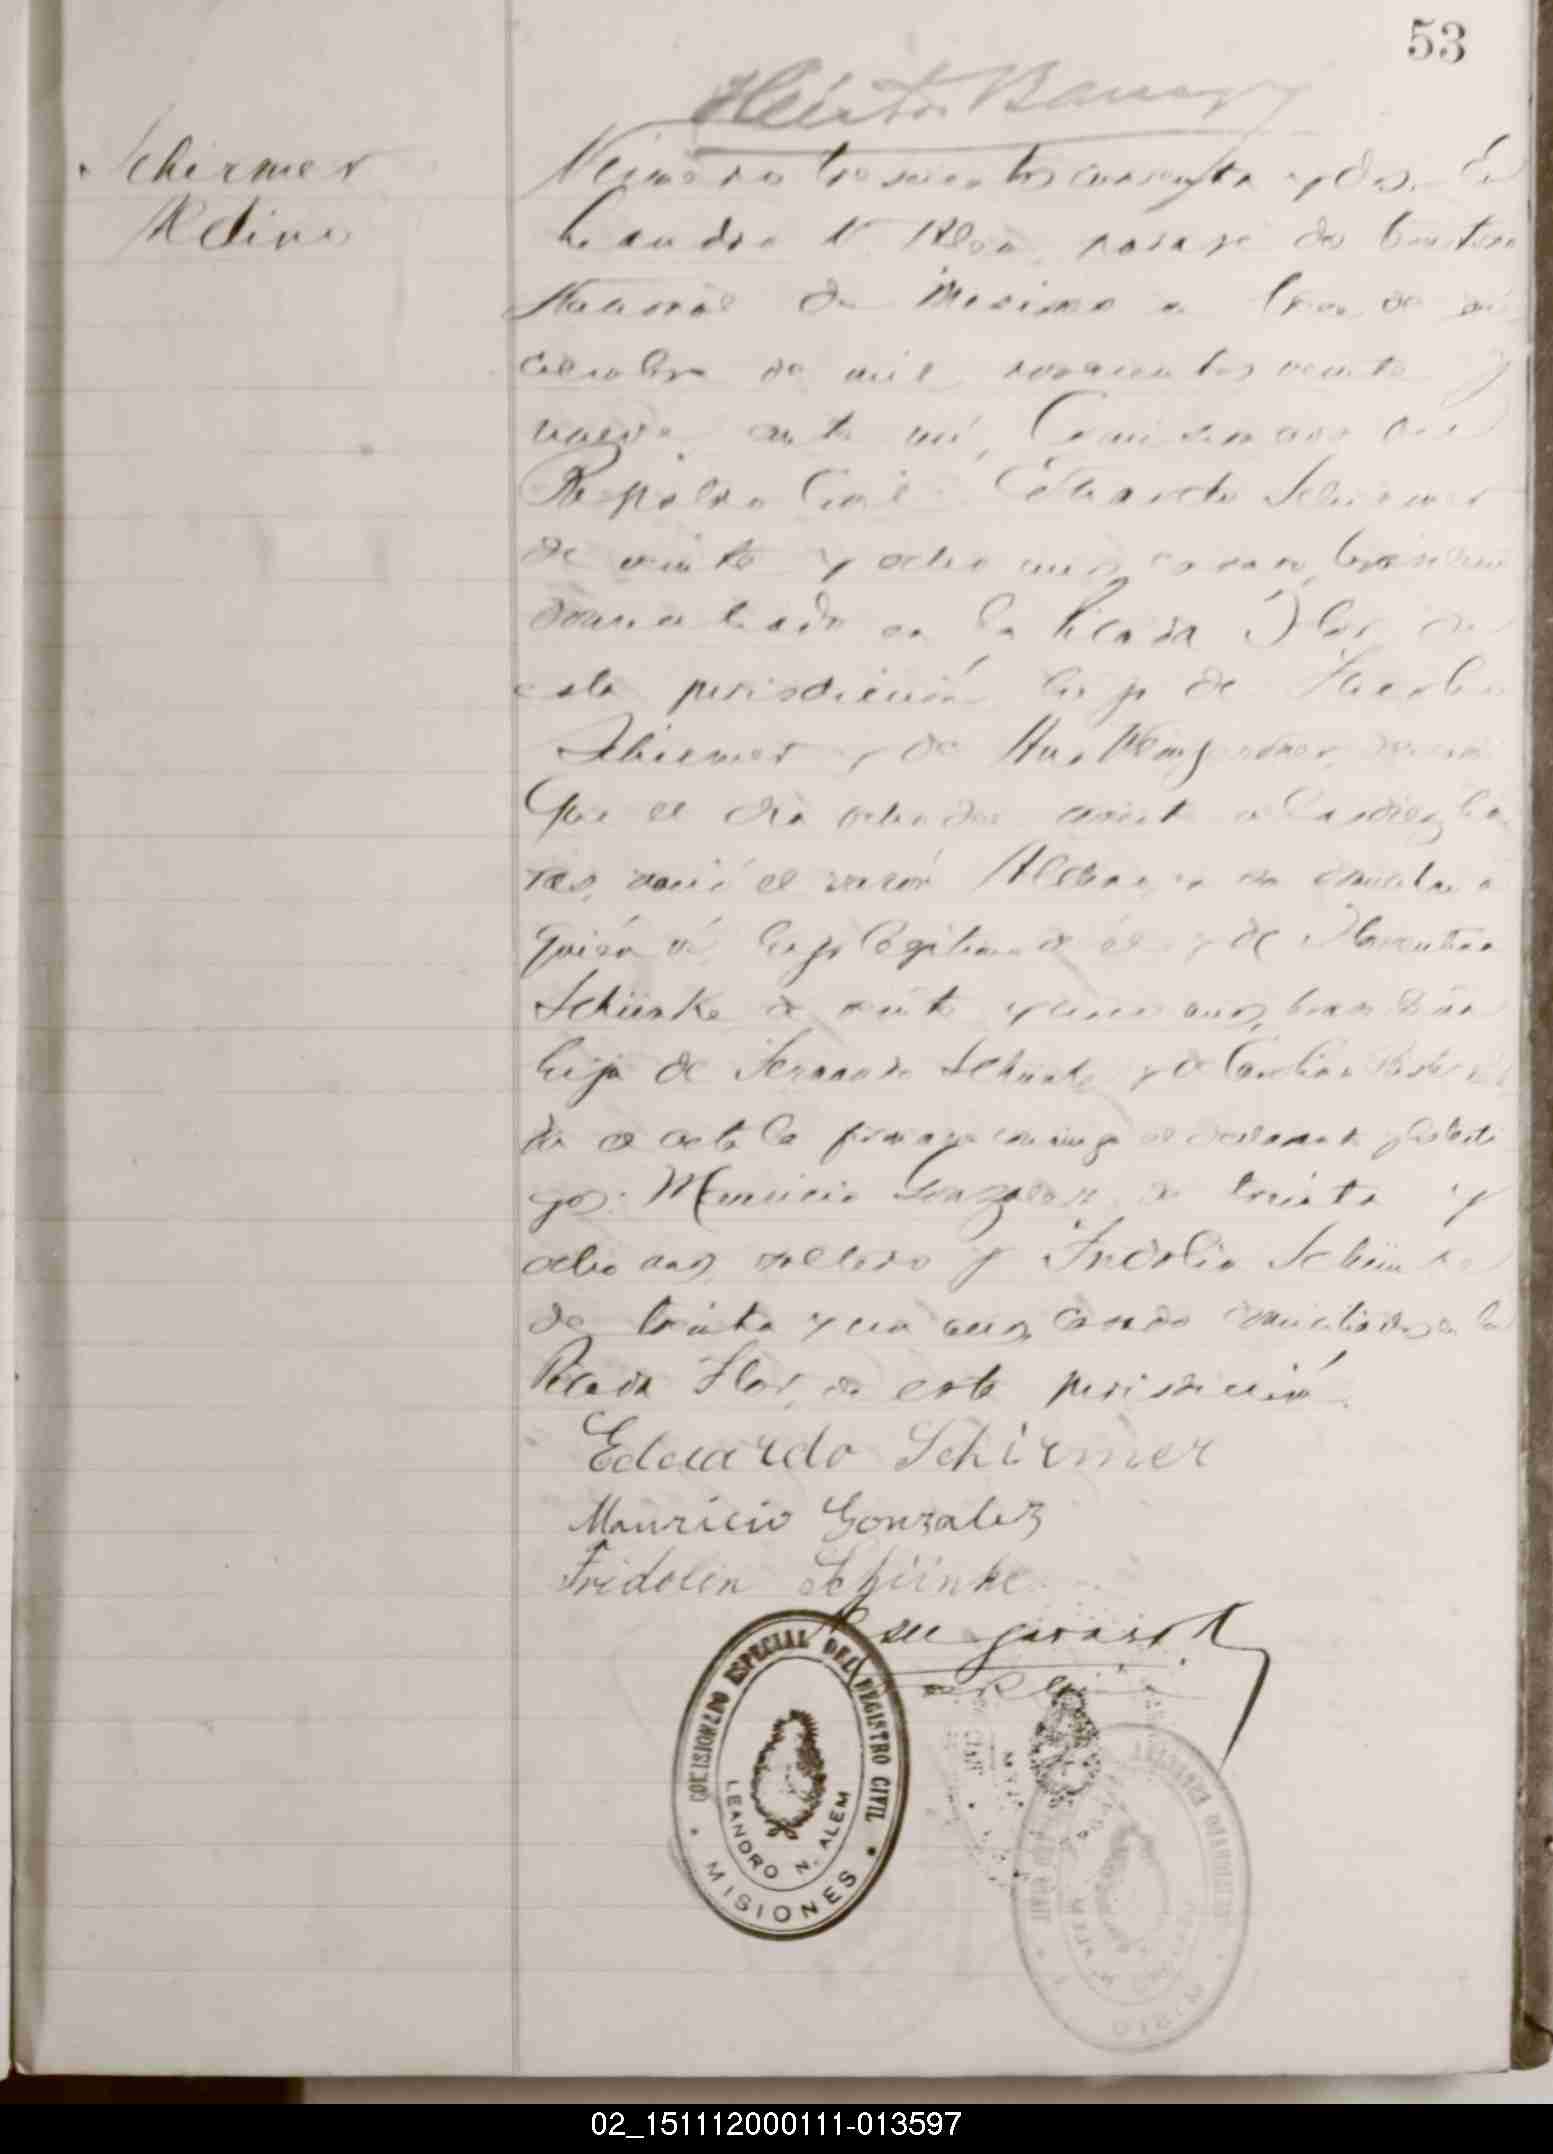 53
Héctor Barney
Schirmer
Aldino
Número trescientos cuarenta y dos. En
Leandro N. Alem, paraje del territorio
Nacional de Misiones a tres de di
ciembre de mil novecientos veinte y
nueve ante mí, Comisionado del
Registro Civil Eduardo Schirmer
de veinte y ocho años casado, brasilero
domiciliado en la Picada Flor, de
esta jurisdicción hijo de
Schirmer y de declaró
Que el día a las diez ho
ras, nació el varón en domicilio a
quién vi, hijo legítimo de él y de Florentina
Schünke de veinte y años, brasilera
hija de Fernando Schünke y de Carolina
da el acta la firmaron conmigo el declarante y los testi
gos: Mauricio Gonzalez, de treinta y
ocho años soltero y Fridolin Schünke
de treinta y un años, casado domiciliados en la
Picada Flor, de esta jurisdicción.
Eduardo Schirmer
Mauricio Gonzalez
Fridolin Schünke
COMISIONADO ESPECIAL DEL REGISTRO CIVIL
LEANDRO N. ALEM
MISIONES
02_151112000111-013597